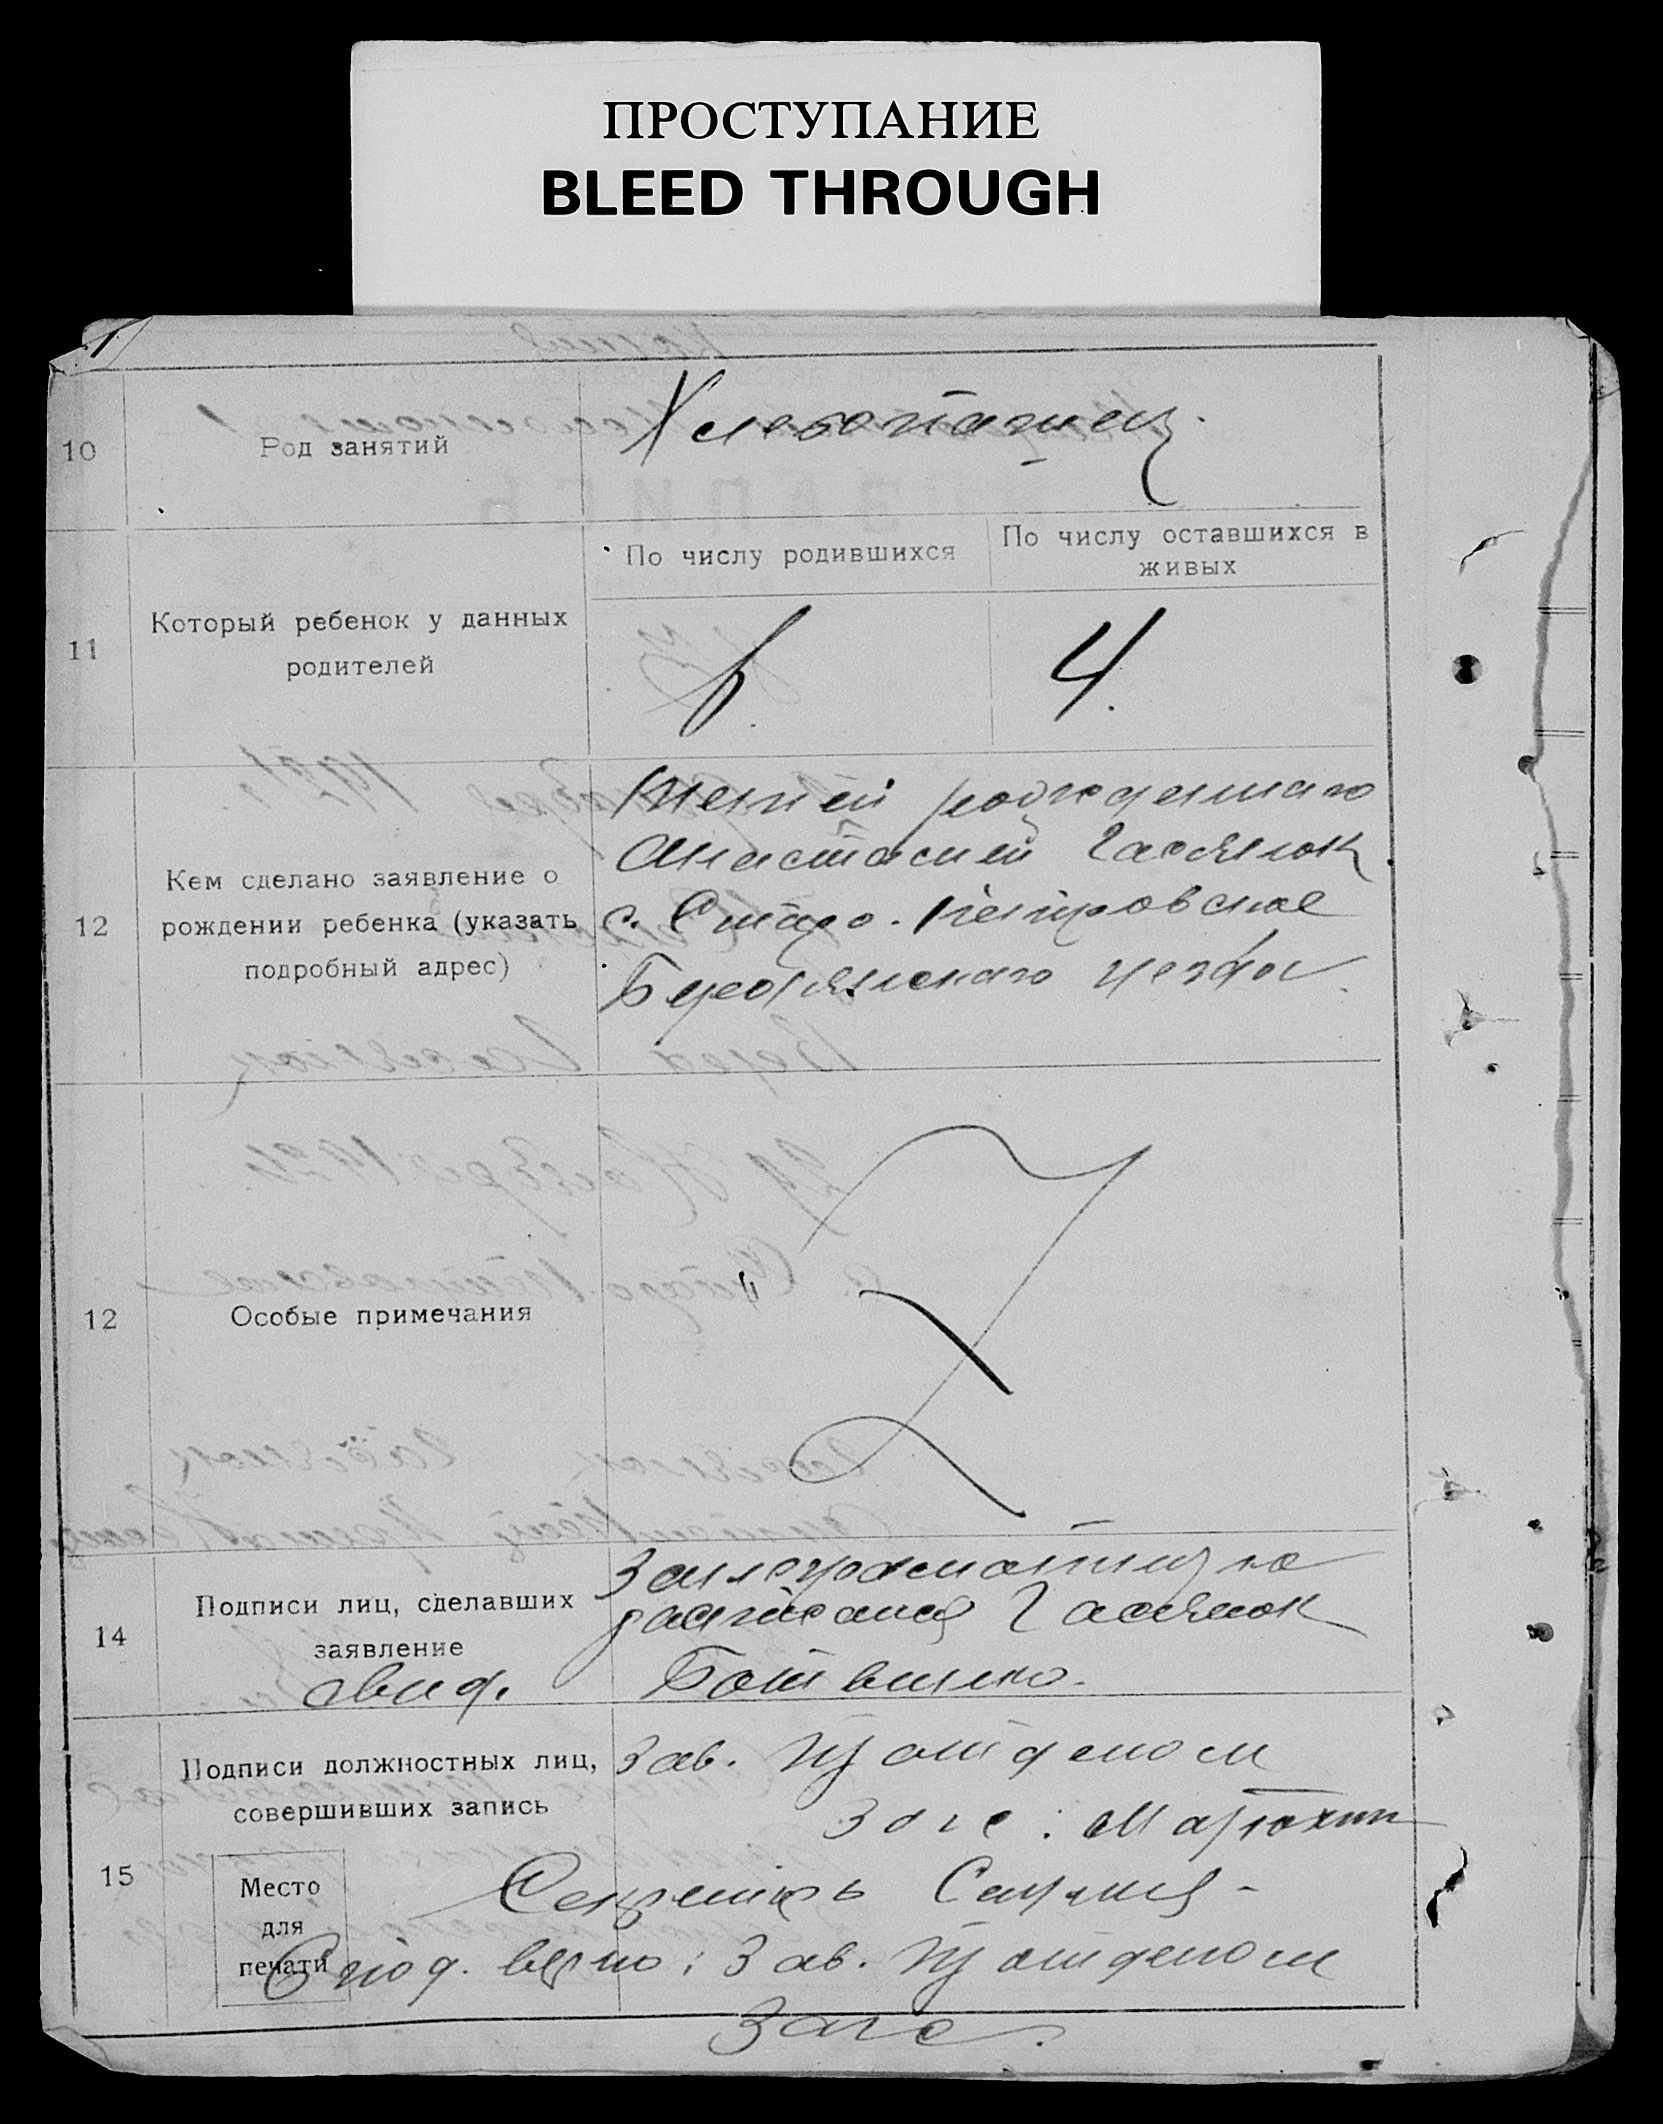 ПРОСТУПАНИЕ
BLEED THROUGH
10
Род занятий
Хлебопашец.
По числу родившихся
По числу оставшихся в
живых
11
Который ребенок у данных
родителей
6.
4.
12
Кем сделано заявление о
рождении ребенка (указать
подробный адрес)
рожденнаго
Анастасией Гасанюк
с. Старо-Петровское
Бердянскаго уезда
12
Особые примечания
14
Подписи лиц, сделавших
заявление
За неграмотную
Гасанюк
15
Подписи должностных лиц,
совершивших запись
Зав. П/отделом
Загс:
Место
для
печати
Секретарь
С под. верно: Зав. П/отделом
Загс.